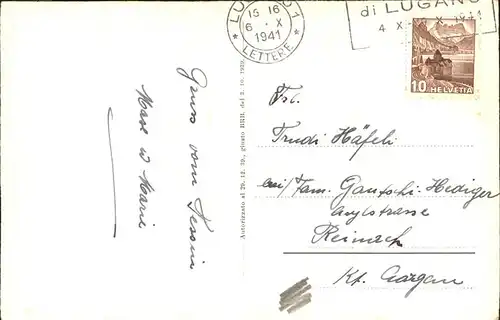 LUGANO 1
15 16
6. X
1941
* LETTERE *
di LUGANO
4 X 1941
10 HELVETIA
Gruss vom Tessin
Marie
Autorizzato al 20. 12. 39., giusto BRB. del 3. 10. 1939.
Frl.
Trudi Häfeli
bei/Fam. Gautschi-Hediger
Asylstrasse
Reinach
Kt. Aargau